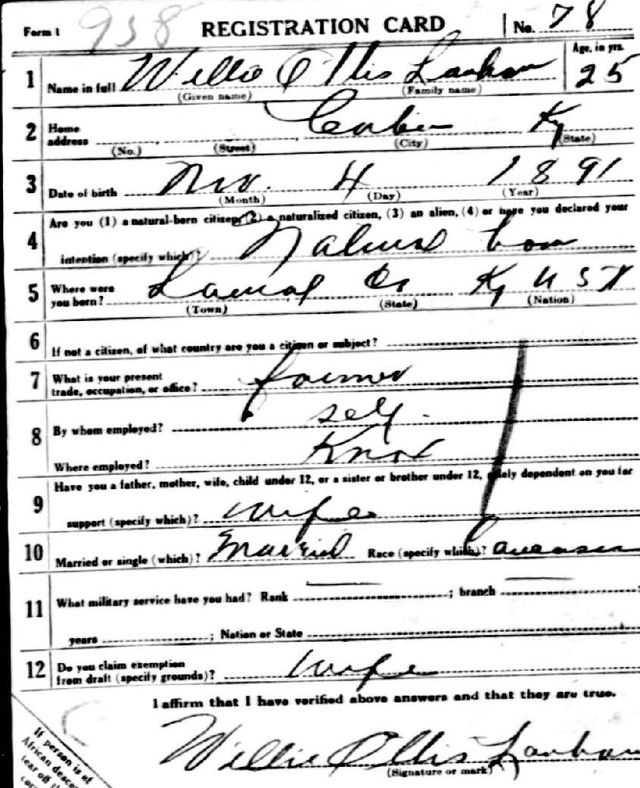 Form 1 958 REGISTRATION CARD No. 78
1 Name in full Willie Ottis Lanham Age, in yrs. 25
(Given name) (Family name)
2 Home address Corbin Ky
(No.) (Street) (City) (State)
3 Date of birth Nov. 4 1891
(Month) (Day) (Year)
4 Are you (1) a natural-born citizen, (2) a naturalized citizen, (3) an alien, (4) or have you declared your
intention (specify which)? Natural born
5 Where were you born? Laurel Co Ky USA
(Town) (State) (Nation)
6 If not a citizen, of what country are you a citizen or subject?
7 What is your present trade, occupation, or office? farmer
8 By whom employed? self.
Where employed? Knox
9 Have you a father, mother, wife, child under 12, or a sister or brother under 12, solely dependent on you for
support (specify which)? wife
10 Married or single (which)? Married Race (specify which)? Caucasian
11 What military service have you had? Rank ; branch ;
years ; Nation or State
12 Do you claim exemption from draft (specify grounds)? wife
I affirm that I have verified above answers and that they are true.
Willie Ottis Lanham
(Signature or mark)
If person is of
African desce
tear off